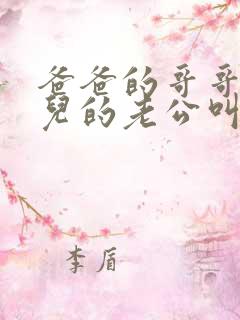 爸爸的哥哥
兒的老公叫
李盾